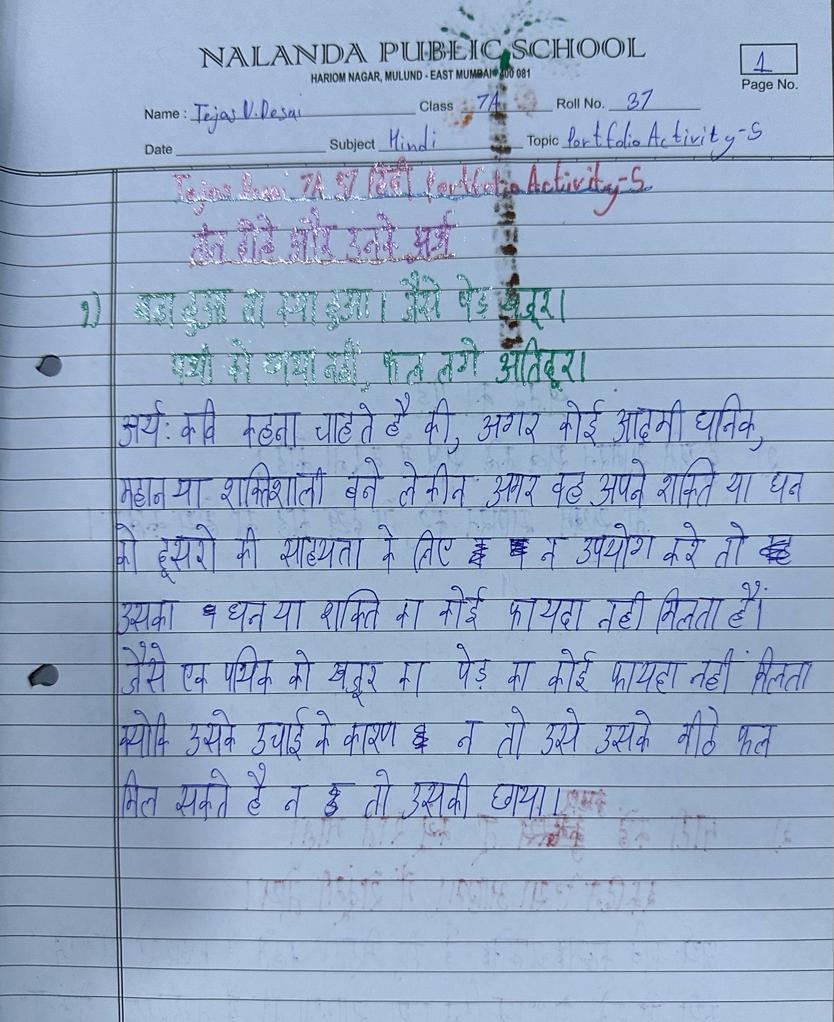 NALANDA PUBLIC SCHOOL
HARIOM NAGAR, MULUND - EAST MUMBAI 400 081
1
Page No.
Name: Tejas V. Desai Class 7A Roll No. 37
Date Subject Hindi Topic Portfolio Activity-5
Tejas Desai 7A 37 हिंदी Portfolio Activity-5
तीन दोहे और उनके अर्थ
१) बड़ा हुआ तो क्या हुआ। जैसे पेड़ खजूर।
पंथी को छाया नहीं, फल लागे अतिदूर।
अर्थ: कवि कहना चाहते है की, अगर कोई आदमी धनिक,
महान या शक्तिशाली बने लेकीन अगर वह अपने शक्ति या धन
को दूसरो की साहयता के लिए न उपयोग करे तो
उसका धन या शक्ति का कोई फायदा नही मिलता हैं।
जैसे एक पथिक को खजूर का पेड़ का कोई फायदा नहीं मिलता
क्योकि उसके उचाई के कारण न तो उसे उसके मीठे फल
मिल सकते है न तो उसकी छाया।